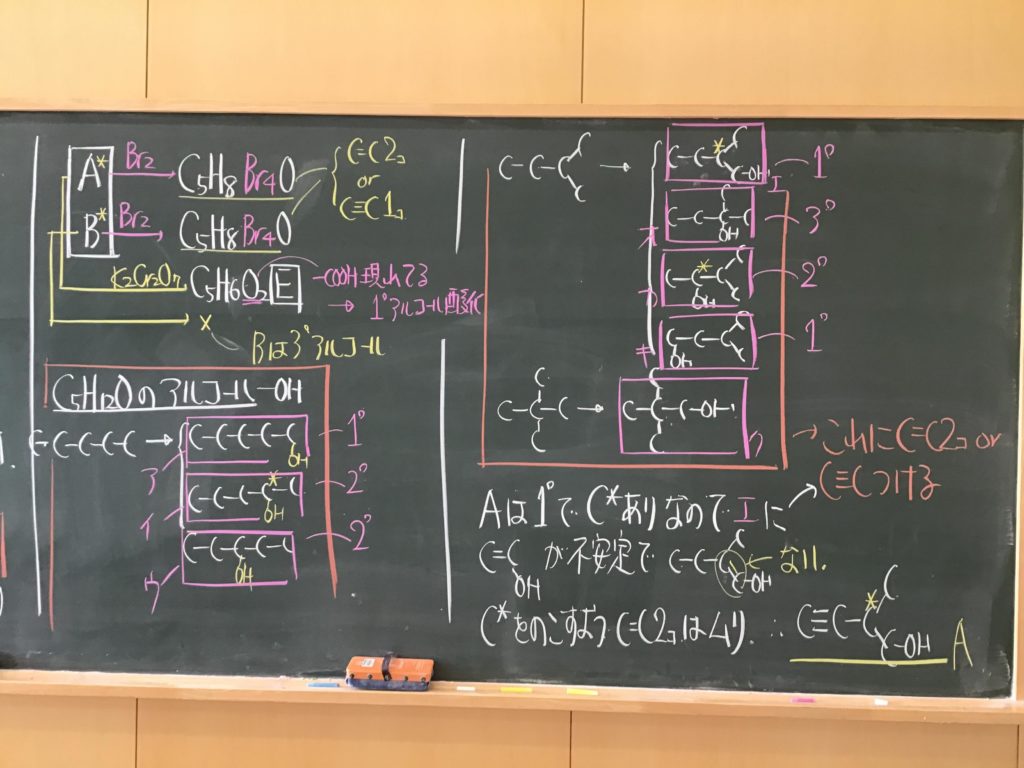 A* Br2 → C5H8Br4O
B* Br2 → C5H8Br4O
C=C 2コ
or
C≡C 1コ
K2Cr2O7 C5H6O2 E
-COOH現れてる
→ 1°アルコール酸化
×
Bは3°アルコール
C5H12Oのアルコール-OH
C-C-C-C-C →
ア C-C-C-C-C OH 1°
イ C-C-C-C*-C OH 2°
ウ C-C-C-C-C OH 2°
C-C-C C C →
C-C-C* C C-OH エ 1°
C-C-C-C C OH 3°
C-C*-C C C OH 2°
C-C-C C C OH 1°
C-C-C C C → C-C-C-OH C C
→ これにC=C2コ or
C≡Cつける
Aは1°で C*ありなので エに
C=C OH が不安定で C-C-C C C-OH ←ない.
C*をのこすよう C=C2コはムリ. ∴ C≡C-C* C C-OH A